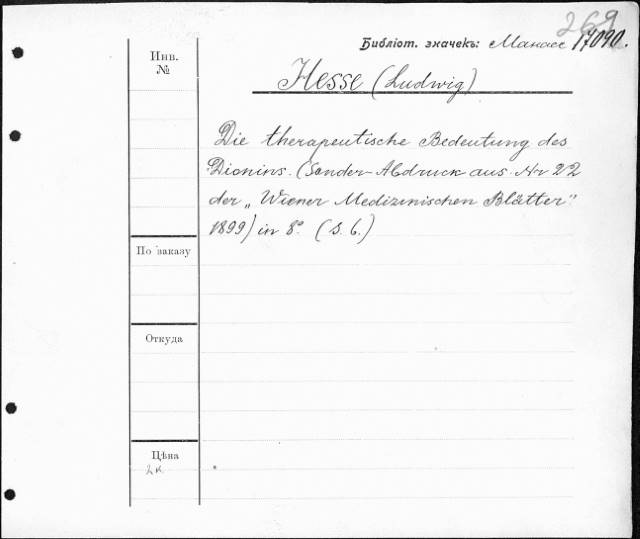 269
Библіот. значекъ: Манасс 17090.
Инв.
№
Hesse (Ludwig)
Die therapeutische Bedeutung des
Dionins. (Sonder-Abdruck aus Nr 22
der „Wiener Medizinischen Blätter"
1899) in 8° (S. 6.)
По заказу
Откуда
Цѣна
2к